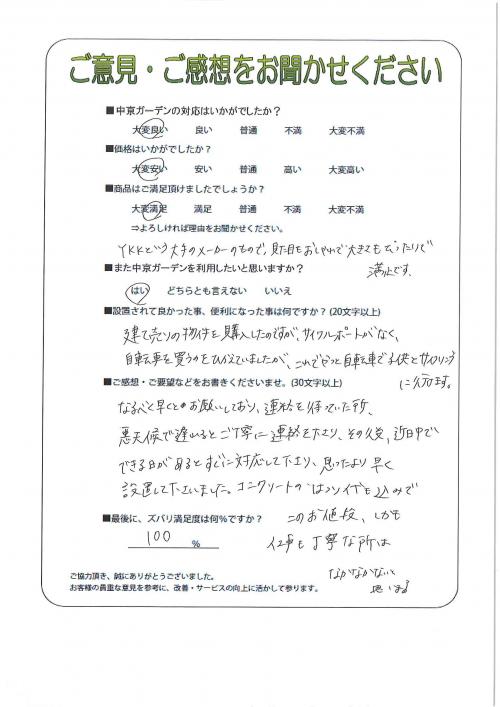 ご意見・ご感想をお聞かせください
■中京ガーデンの対応はいかがでしたか？
大変良い 良い 普通 不満 大変不満
■価格はいかがでしたか？
大変安い 安い 普通 高い 大変高い
■商品はご満足頂けましたでしょうか？
大変満足 満足 普通 不満 大変不満
⇒よろしければ理由をお聞かせください。
YKKという大手のメーカーのもので、見た目もおしゃれで大きさもぴったりで
満足です。
■また中京ガーデンを利用したいと思いますか？
はい どちらとも言えない いいえ
■設置されて良かった事、便利になった事は何ですか？(20文字以上)
建て売りの物件を購入したのですが、サイクルポートがなく、
自転車を買うのをひかえていましたが、これでやっと自転車で子供とサイクリング
に行けます。
■ご感想・ご要望などをお書きくださいませ。(30文字以上)
なるべく早くとお願いしており、連絡を待っていた所、
悪天候で遅れるとご丁寧に連絡を下さり、その後、近日中で
できる日があるとすぐに対応して下さり、思ったより早く
設置して下さいました。コンクリートのはつり代も込みで
このお値段、しかも
工事も丁寧な所は
なかなかないと
思います
■最後に、ズバリ満足度は何％ですか？
100 %
ご協力頂き、誠にありがとうございました。
お客様の貴重な意見を参考に、改善・サービスの向上に活かして参ります。